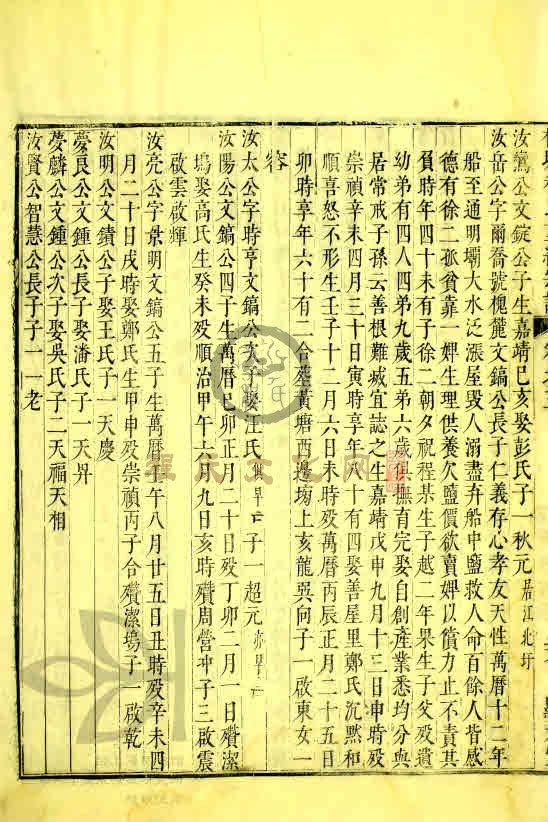 汝鸞公文錠公子生嘉靖巳亥娶彭氏子一秋元居江北圩
汝岳公字爾喬號槐麓文鎬公長子仁義存心孝友天性萬曆十二年
船至通明壩大水泛漲屋毀人溺盡弃船中鹽救人命百餘人皆感
德有徐二孤貧靠一婢生理供養欠鹽價欲賣婢以償力止不責其
負時年四十未有子徐二朝夕祝程某生子越二年果生子父殁遺
幼弟有四人四弟九歲五弟六歲俱撫育完娶自創產業悉均分與
居常戒子孫云善根難䘏宜誌之生嘉靖戊申九月十三日申時殁
崇禎辛未四月三十日寅時享年八十有四娶善屋里鄭氏沉黙和
順喜怒不形生壬子十二月六日未時殁萬曆丙辰正月二十五日
卯時享年六十有二合塟黃塘西邊塢上亥龍巽向子一啟東女一
容
汝太公字時亨文鎬公次子娶汪氏俱早亡子一超元亦早亡
汝陽公文鎬公四子生萬曆巳卯正月二十日殁丁卯二月一日殯潔
塢娶高氏生癸未殁順治甲午六月九日亥時殯周營冲子三啟震
啟雲啟輝
汝亮公字景明文鎬公五子生萬曆壬午八月廿五日丑時殁辛未四
月二十日戌時娶鄭氏生甲申殁崇禎丙子合殯潔塢子一啟乾
汝明公文鐀公子娶王氏子一天慶
夢良公文鍾公長子娶潘氏子一天昇
夢麟公文鍾公次子娶吳氏子二天福天相
汝賢公智慧公長子子一一老